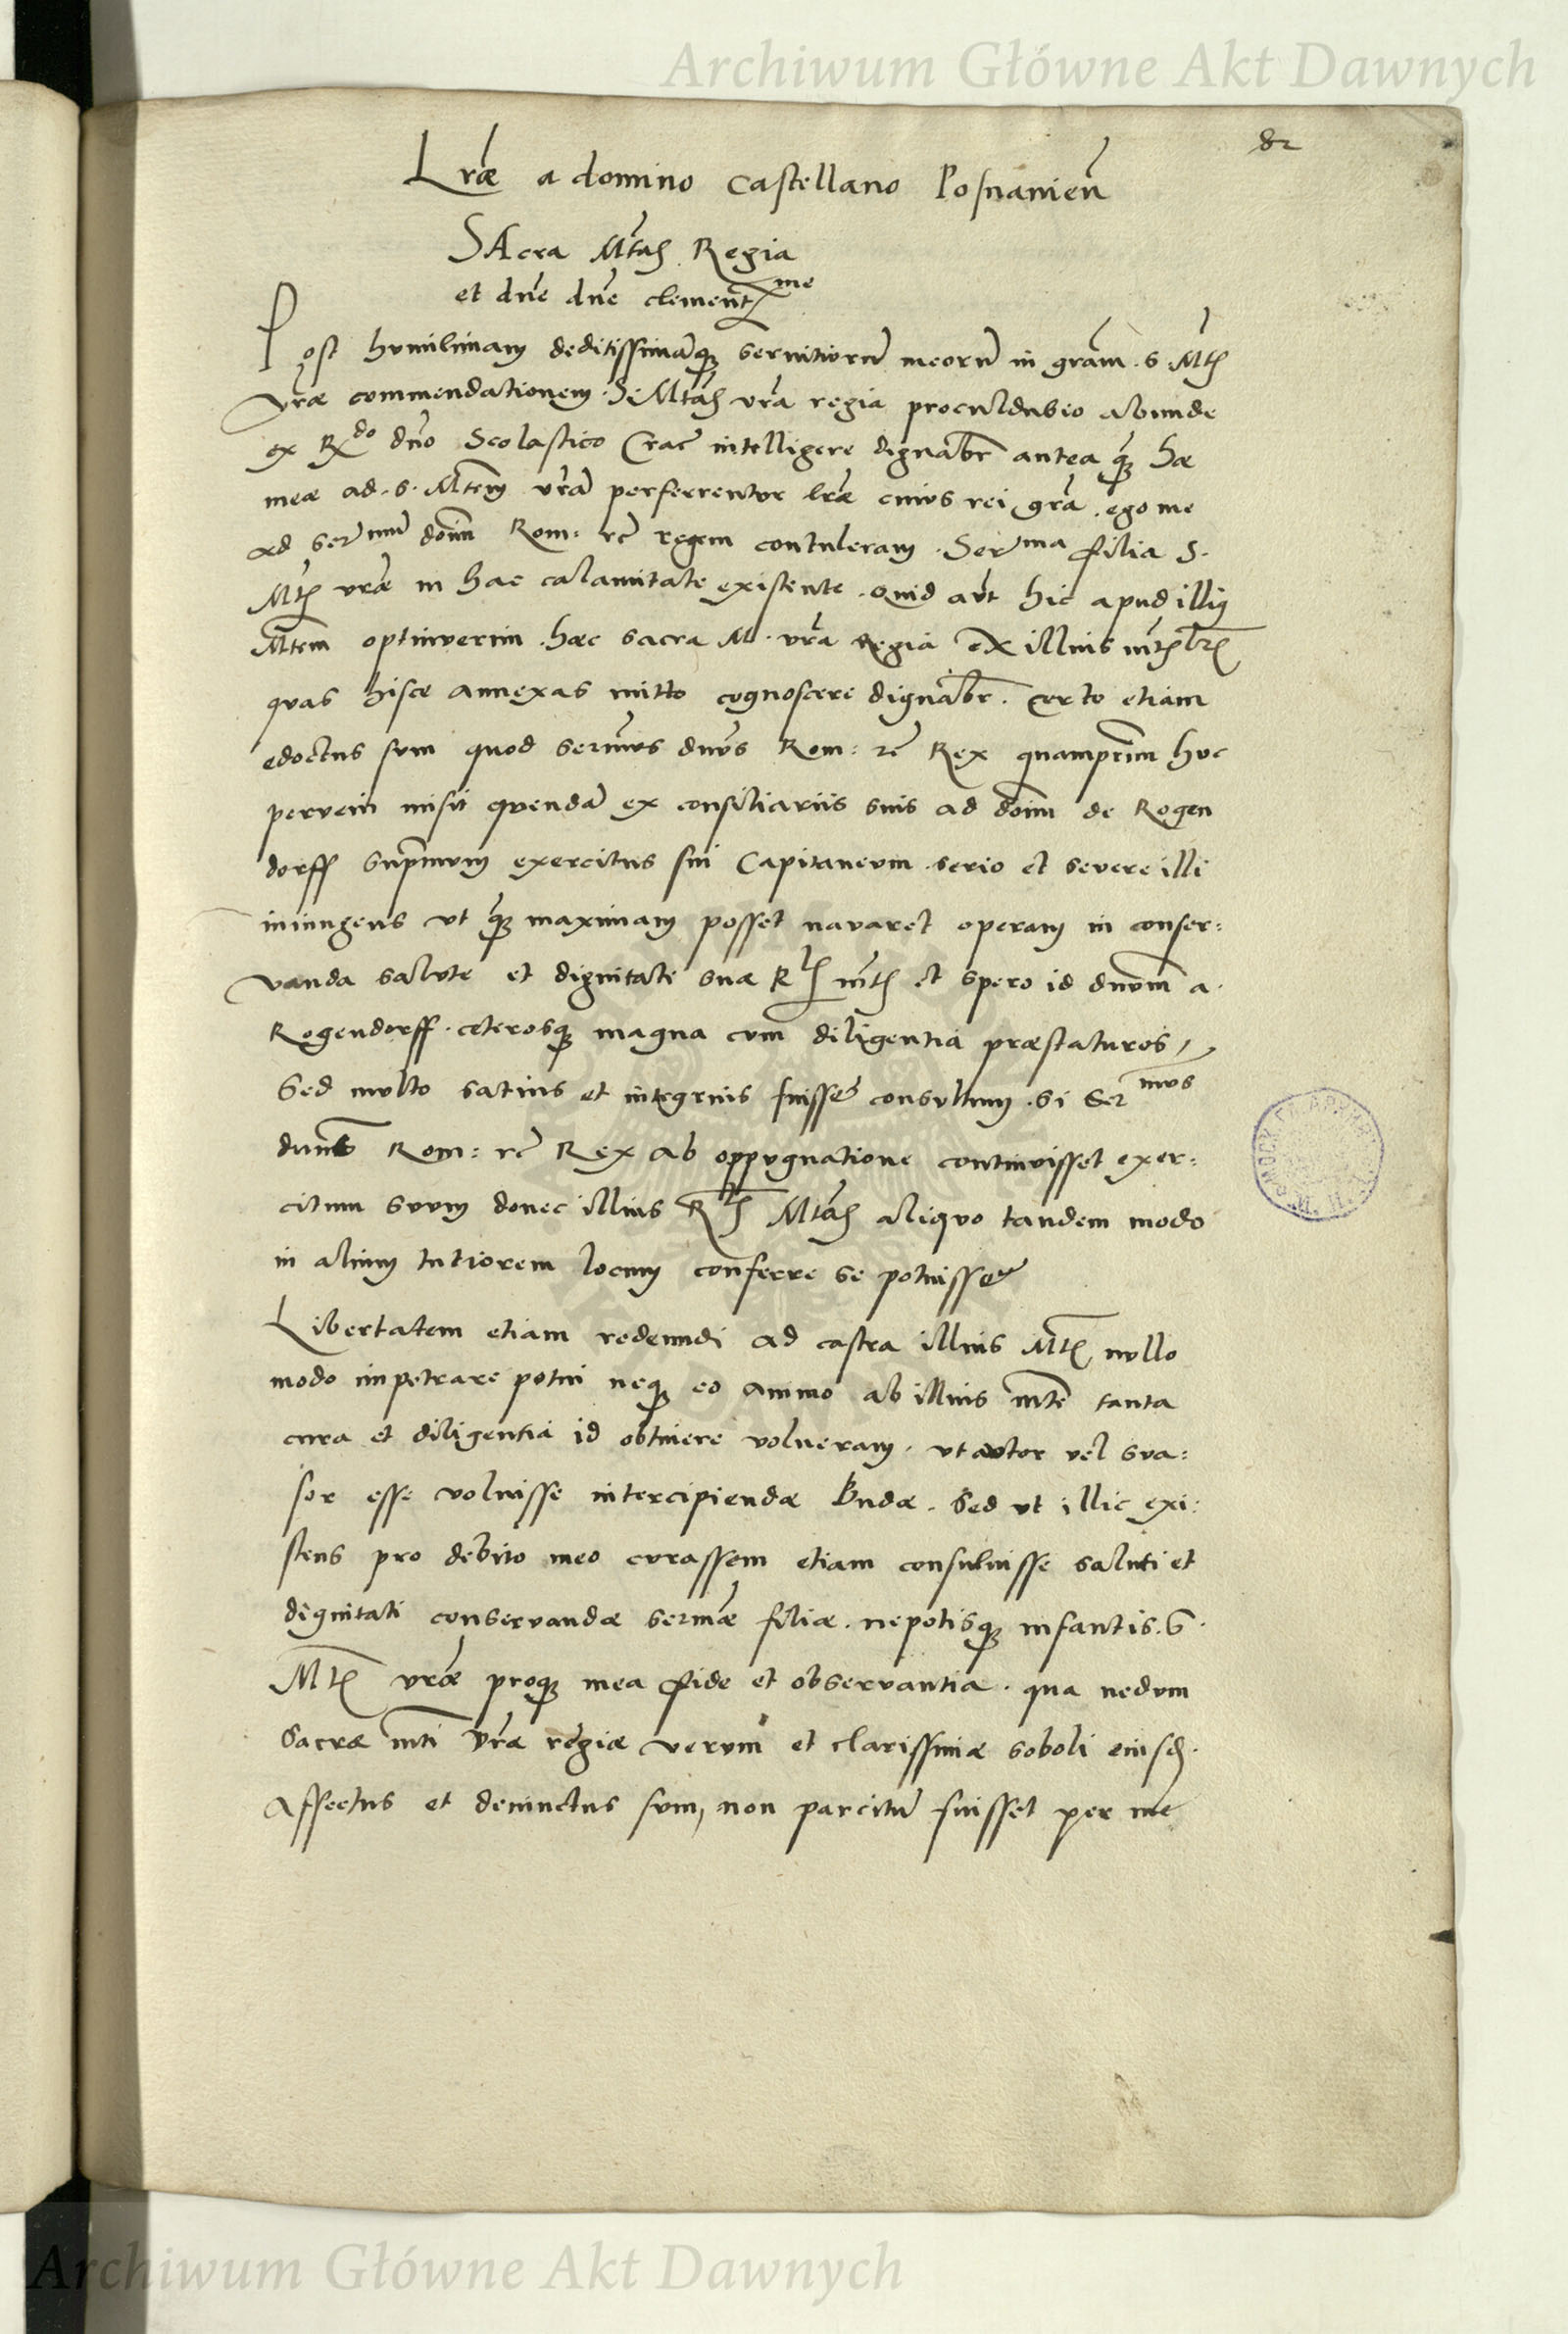 Archiwum Główne Akt Dawnych
82
Lrae a domino Castellano Posnanien
SAcra Mtas Regia
et dne dne clementxme
Post humilimam deditissimaque servitiorum meorum in gram. s. Mtis
vrae commendationem. S. Mtas vra regia proculdubio abunde
ex Rdo dno Scolastico Crac intelligere dignabr antea quam hae
meae ad. s. Mtem vram perferrentur lrae cuius rei gra. ego me
ad sermum domin Rom: rc regem contuleram. Serma filia S.
Mtis vrae in hac calamitate existente. Quid aut hic apud illius
Mtem optinuerim. haec sacra M. vra Regia ex illius mtis lris
quas hisce annexas mitto cognoscere dignabr. Certo etiam
edoctus sum quod sermus dnus Rom: rc Rex quamprim huc
perveni misit quendam ex consiliariis suis ad dominum de Rogen
dorff supremum exercitus sui Capitaneum. serio et severe illi
iniungens ut quam maximam posset navaret operam in conser:
vanda salute et dignitate suae Rtis mtis et spero id dnum a.
Rogendorff. ceterosque magna cum diligentia praestaturos,
Sed multo satius et integrius fuisset consultum. si Sermus
dnus Rom: rc Rex ab oppugnatione continuisset exer:
citum suum donec illius Rtis Mtas aliquo tandem modo
in alium tutiorem locum conferre se potuisset
Libertatem etiam redeundi ad castra illius Mtis nullo
modo impetrare potui neque eo animo ab illius mte tanta
cura et diligentia id obtinere volueram. ut autor vel sua:
sor esse voluisse intercipiendae Budae. Sed ut illic exi:
stens pro debito meo curassem etiam consuluisse saluti et
dignitati conservandae sermae filiae. nepotisque infantis. S.
Mtis vrae proque mea fide et observantia. qua nedum
Sacrae mti vrae regiae verum et clarissimae soboli eiusd.
affectus et devinctus sum, non parcitum fuisset per me
Archiwum Główne Akt Dawnych